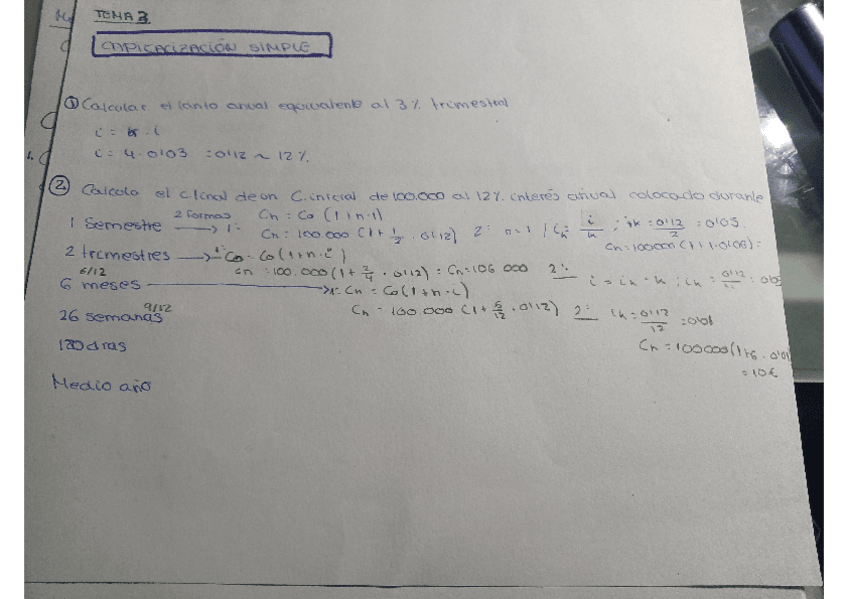 TEMA 3
CAPICACIZACIÓN SIMPLE
① Calcular el tanto anual equivalente al 3% trimestral
i = k · i
i = 4 · 0'03 = 0'12 ~ 12%
② Calcula el c.final de un C. inicial de 100.000 al 12% interés anual colocado durante
1 Semestre 2 formas → 1º: Cn = Co (1+n·i)
Cn = 100.000 (1 + 1/2 · 0'12) 2º: n=1 / ik = i/k ; ik = 0'12/2 = 0'06
Cn = 100000 (1+1·0'06) =
2 trimestres → 1º Co · Co (1+n·i)
Cn = 100.000 (1 + 2/4 · 0'12) = Cn = 106 000 2º: i = ik · k ; ik = 0'12
6/12
6 meses → 1º Cn = Co (1+n·i)
Cn = 100 000 (1 + 6/12 · 0'12) 2º: ik = 0'12/12 = 0'01
Cn = 100000 (1+6 · 0'01
= 106
26 semanas 9/12
180 dias
Medio año